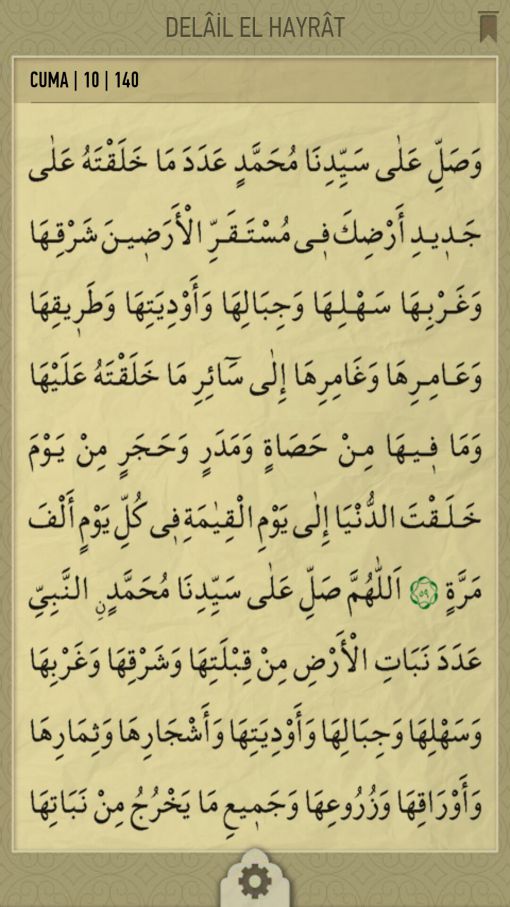 DELÂİL EL HAYRÂT
CUMA | 10 | 140
وَصَلِّ عَلٰى سَيِّدِنَا مُحَمَّدٍ عَدَدَ مَا خَلَقْتَهُ عَلٰى
جَدٖيدِ أَرْضِكَ فٖى مُسْتَقَرِّ الْأَرَضٖينَ شَرْقِهَا
وَغَرْبِهَا سَهْلِهَا وَجِبَالِهَا وَأَوْدِيَتِهَا وَطَرٖيقِهَا
وَعَامِرِهَا وَغَامِرِهَا إِلٰى سَٓائِرِ مَا خَلَقْتَهُ عَلَيْهَا
وَمَا فٖيهَا مِنْ حَصَاةٍ وَمَدَرٍ وَحَجَرٍ مِنْ يَوْمَ
خَلَقْتَ الدُّنْيَا إِلٰى يَوْمِ الْقِيٰمَةِ فٖى كُلِّ يَوْمٍ أَلْفَ
مَرَّةٍ ٥٩ اَللّٰهُمَّ صَلِّ عَلٰى سَيِّدِنَا مُحَمَّدٍنِ النَّبِىِّ
عَدَدَ نَبَاتِ الْأَرْضِ مِنْ قِبْلَتِهَا وَشَرْقِهَا وَغَرْبِهَا
وَسَهْلِهَا وَجِبَالِهَا وَأَوْدِيَتِهَا وَأَشْجَارِهَا وَثِمَارِهَا
وَأَوْرَاقِهَا وَزُرُوعِهَا وَجَمٖيعِ مَا يَخْرُجُ مِنْ نَبَاتِهَا